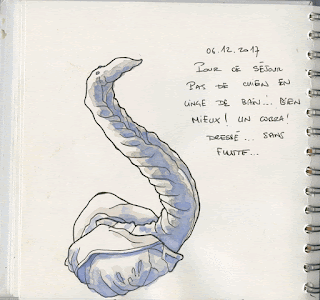 06.12.2017
POUR CE SÉJOUR
PAS DE CHIEN EN
LINGE DE BAIN... BIEN
MIEUX! UN COBRA!
DRESSÉ... SANS
FLUTE...